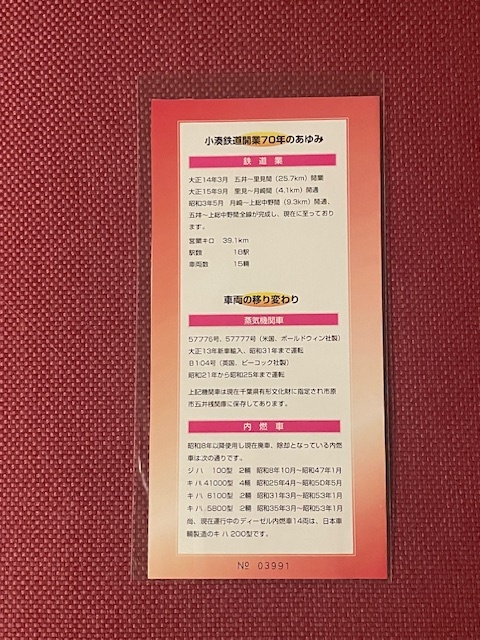 小湊鉄道開業70年のあゆみ
鉄道業
大正14年3月 五井〜里見間（25.7km）開業
大正15年9月 里見〜月崎間（4.1km）開通
昭和3年5月 月崎〜上総中野間（9.3km）開通、
五井〜上総中野間全線が完成し、現在に至っており
ます。
営業キロ 39.1km
駅数 18駅
車両数 15輌
車両の移り変わり
蒸気機関車
57776号、57777号（米国、ボールドウィン社製）
大正13年新車輸入、昭和31年まで運転
8104号（英国、ピーコック社製）
昭和21年から昭和25年まで運転
上記機関車は現在千葉県有形文化財に指定され市原
市五井機関庫に保存してあります。
内燃車
昭和8年以降使用し現在廃車、除却となっている内燃
車は次の通りです。
ジハ 100型 2輌 昭和8年10月〜昭和47年1月
キハ 41000型 4輌 昭和25年4月〜昭和50年5月
キハ 6100型 2輌 昭和31年3月〜昭和53年1月
キハ 5800型 2輌 昭和35年3月〜昭和53年1月
尚、現在運行中のディーゼル内燃車14両は、日本車
輌製造のキハ200型です。
№ 03991